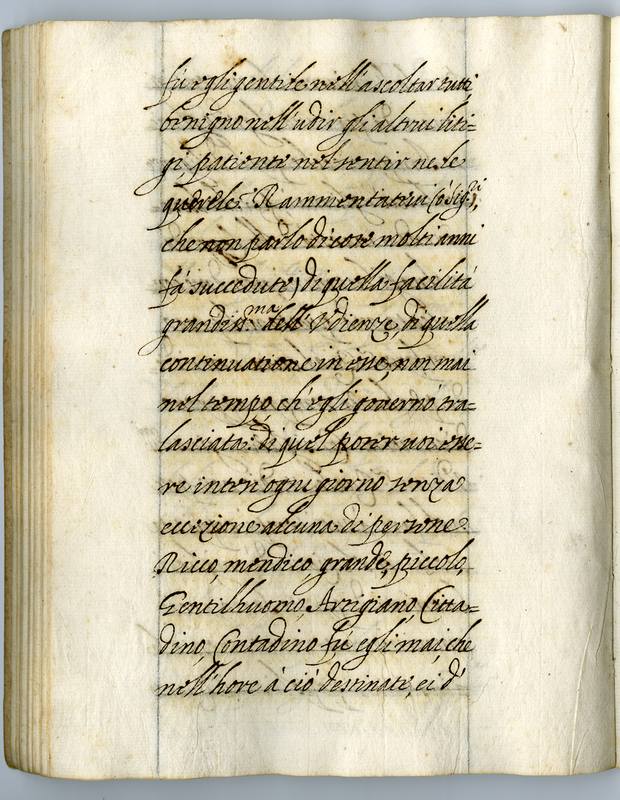 fù egli gentile nell'ascoltar tutti,
benigno nell'udir gli altrui liti=
gi, patiente nel sentir ne le
querele. Rammentatevi (ò Sig.ri,
che non parlo di cose molti anni
fà succedute) di quella facilità
grandis.ma dell'Udienze, di quella
continuatione in esse, non mai
nel tempo, ch'egli governò tra=
lasciata: di quel poter voi esse=
re intesi ogni giorno senza
eccezione alcuna di persone.
Ricco, mendico, grande, piccolo,
Gentilhuomo, Artigiano, Citta=
dino, Contadino fù egli mai che
nell'hore à ciò destinate, ei d'